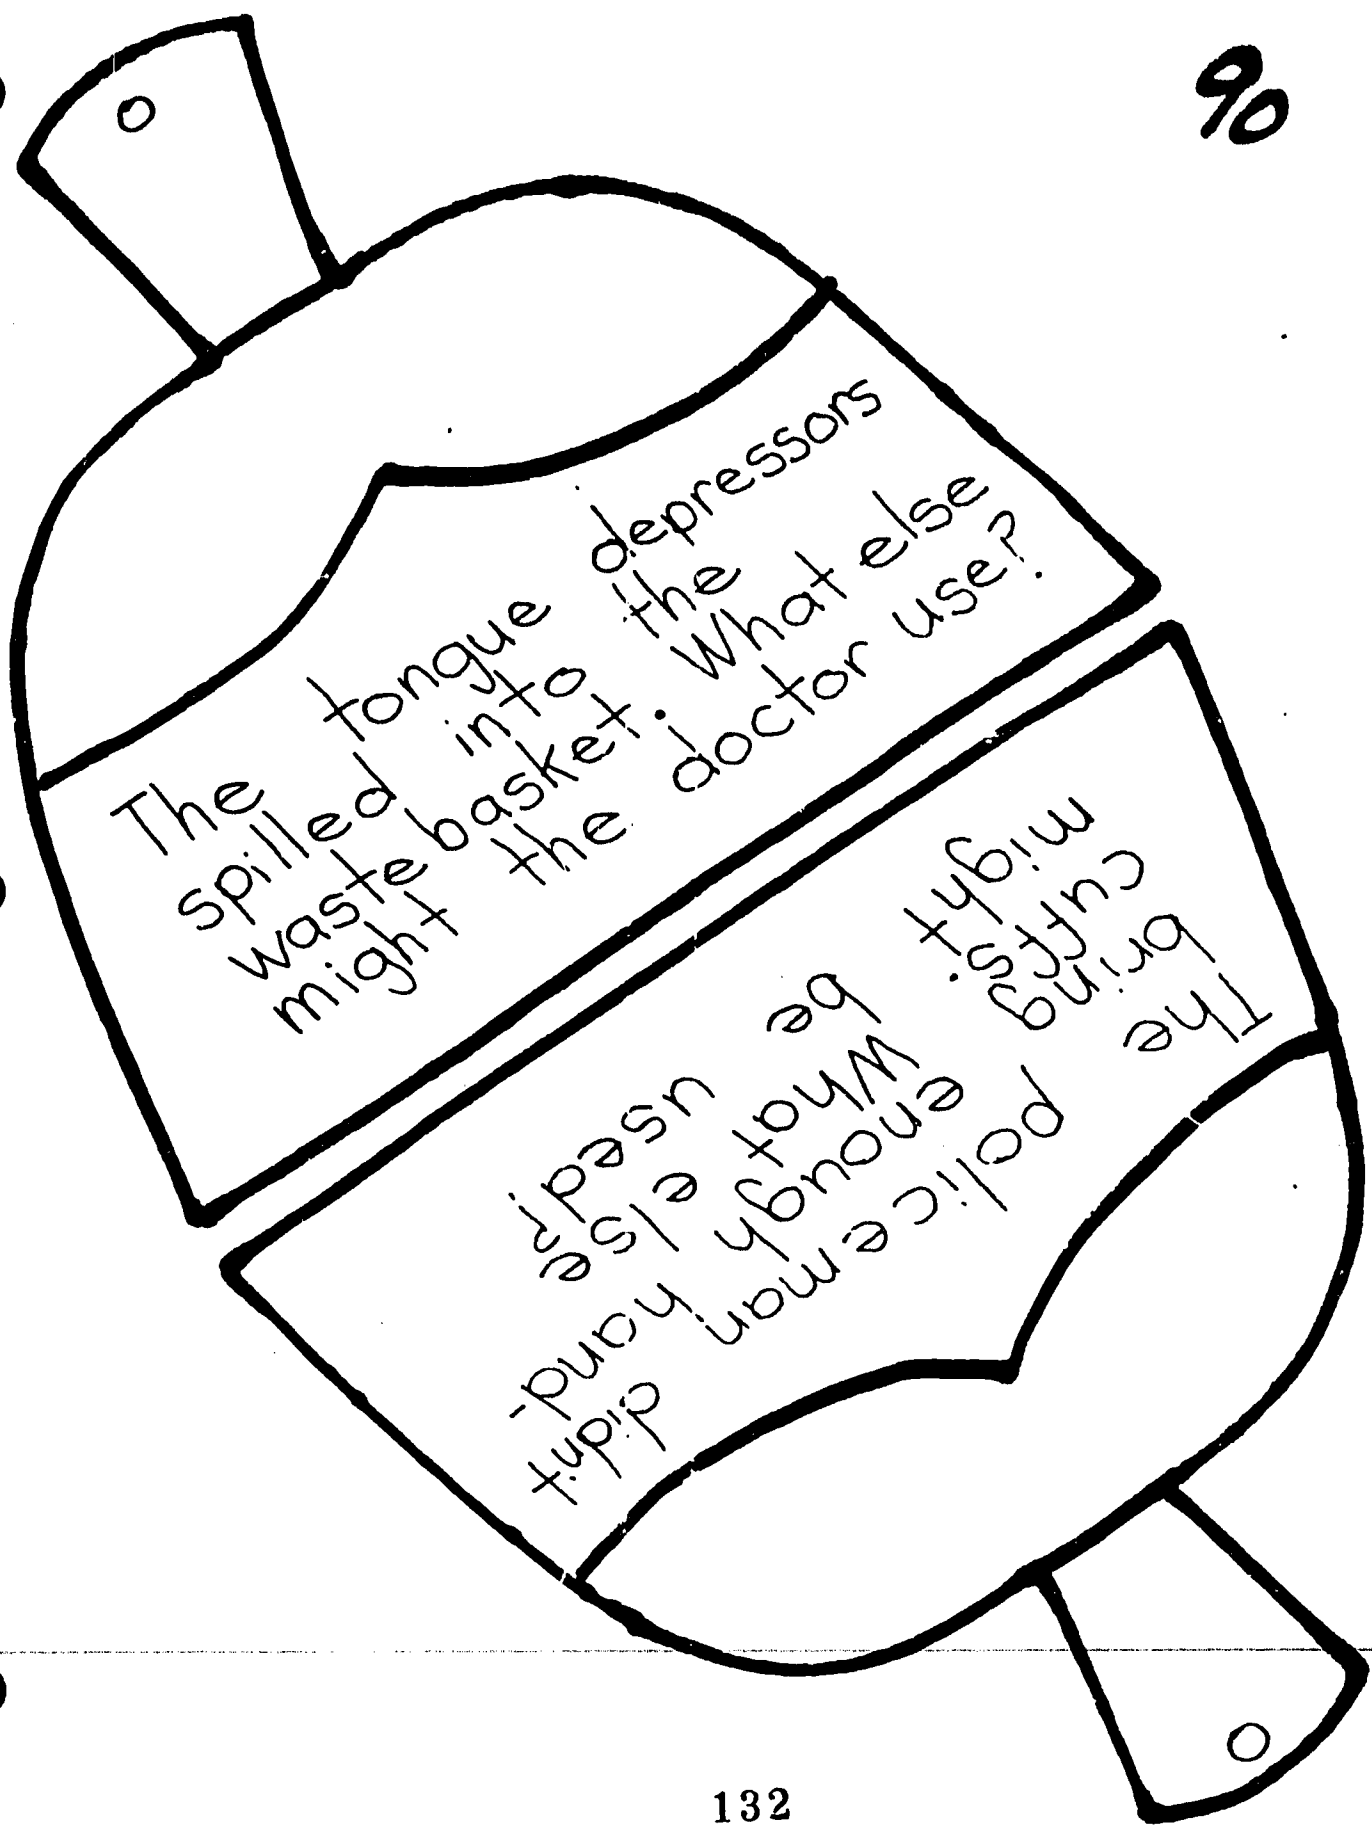 90
The tongue depressors
spilled into the
waste basket. What else
might the doctor use?
The policeman didn't
bring enough hand-
cuffs. What else
might be used?
132